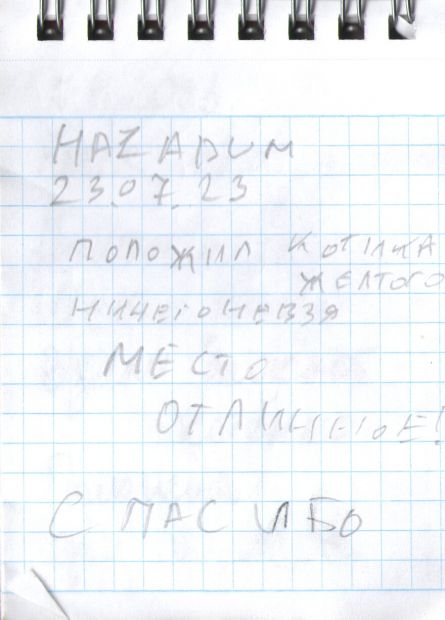 HAZADUM
23.07.23
ПОЛОЖИЛ КОТИКА
ЖЕЛТОГО
НИЧЕГО НЕ ВЗЯ
МЕСТО
ОТЛИЧНОЕ!
СПАСИБО